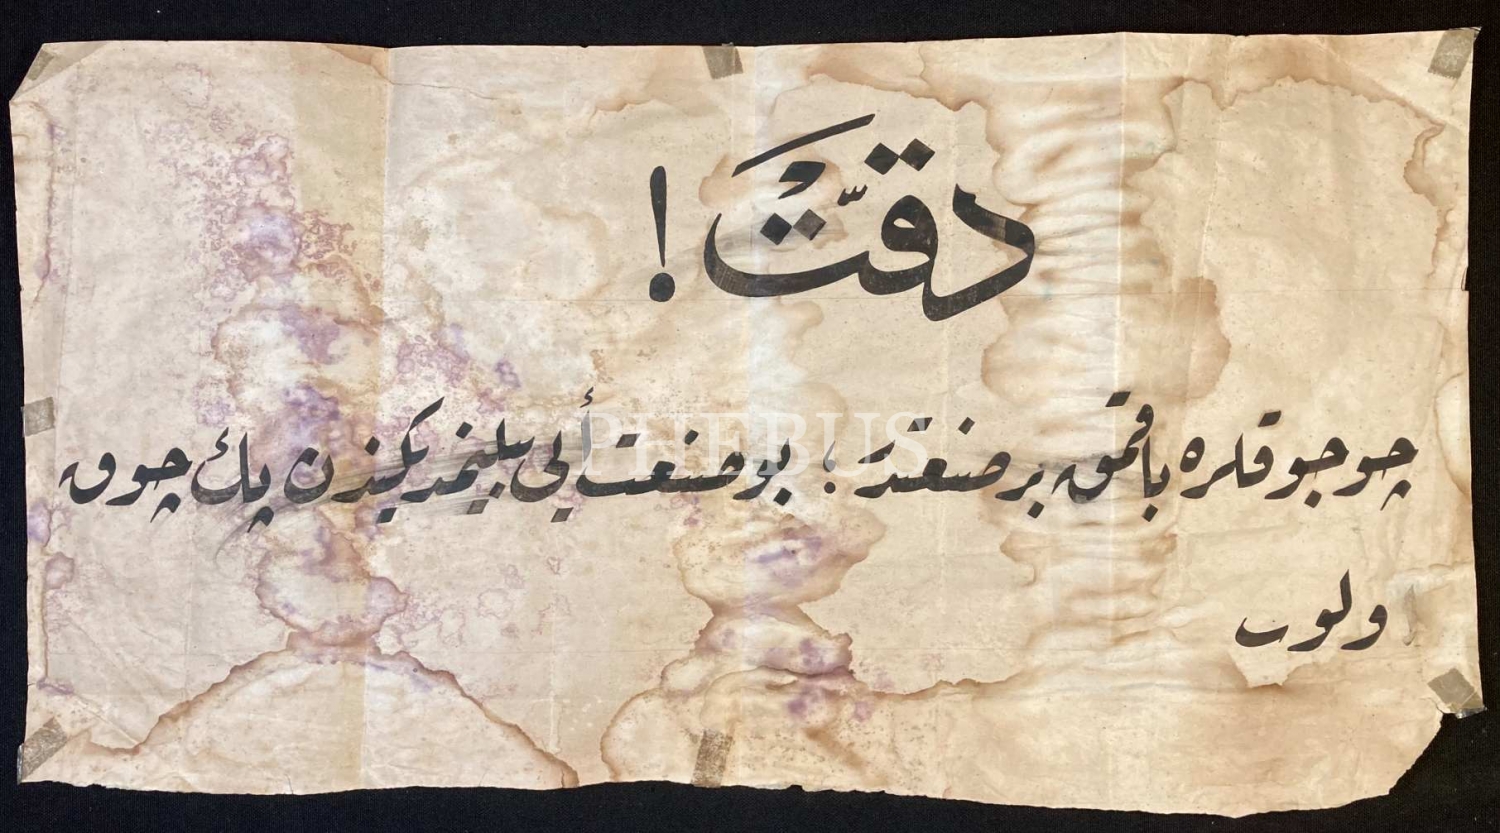 دقتّ !
چوجوقلره باقمق بر صنعتدر ؛ بو صنعت أيى بيلنمديكيندن پك چوق
ولوب
PHEBUS